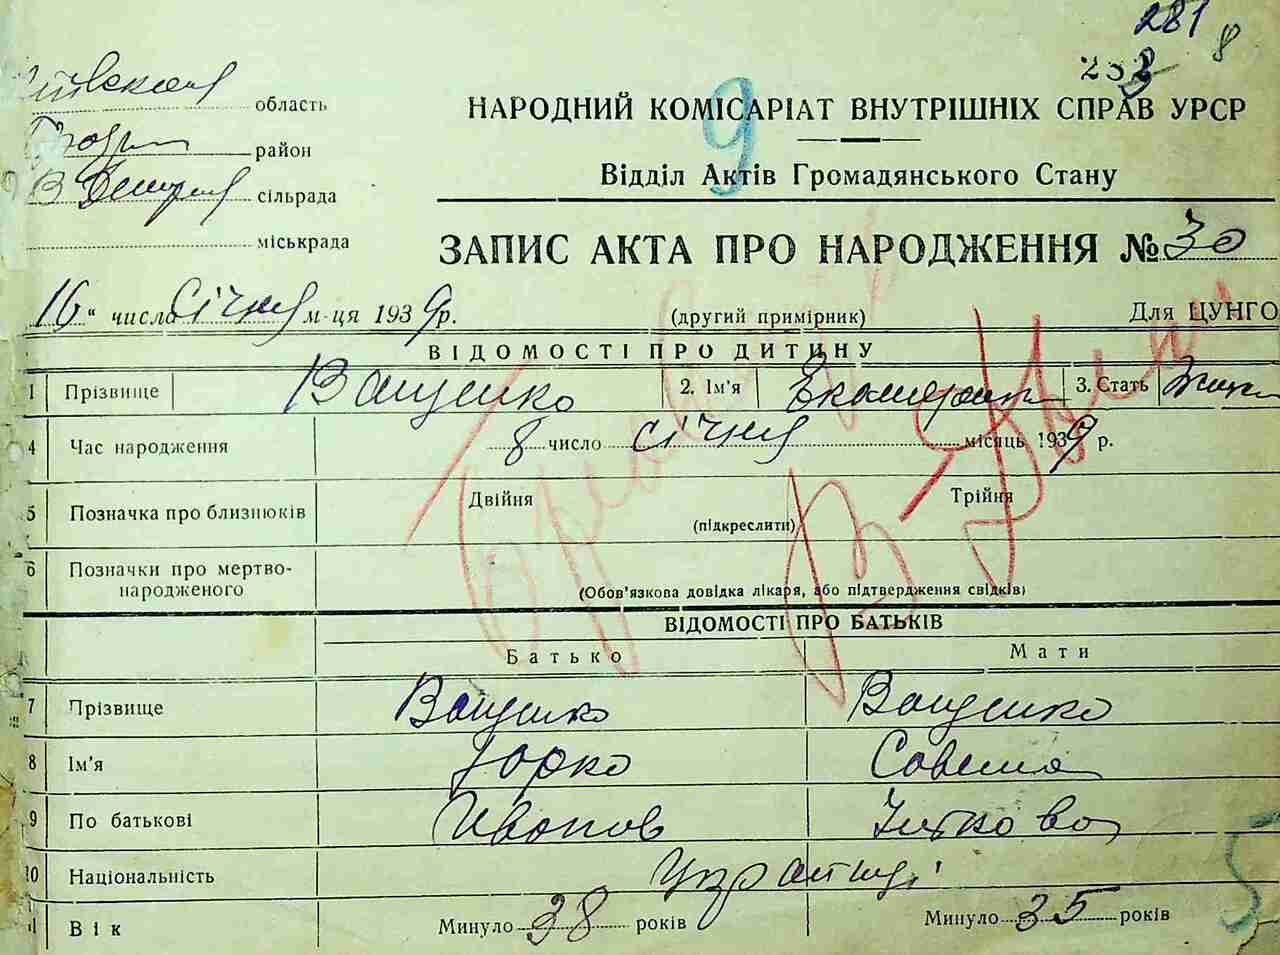 281 8
НАРОДНИЙ КОМІСАРІАТ ВНУТРІШНІХ СПРАВ УРСР
область
район
Відділ Актів Громадянського Стану
сільрада
міськрада
ЗАПИС АКТА ПРО НАРОДЖЕННЯ № 30
16 " числа Січня м-ця 1939 р. (другий примірник) Для ЦУНГО
9
ВІДОМОСТІ ПРО ДИТИНУ
1 Прізвище Ващенко 2. Ім'я Екатерина 3. Стать
4 Час народження 8 число січня місяць 1939 р.
5 Позначка про близнюків Двійня Трійня
(підкреслити)
6 Позначки про мертво-
народженого (Обов'язкова довідка лікаря, або підтвердження свідків)
ВІДОМОСТІ ПРО БАТЬКІВ
Батько Мати
7 Прізвище Ващенко Ващенко
8 Ім'я Юрко
9 По батькові Иванов
10 Національність Українці
11 Вік Минуло 38 років Минуло 35 років
5